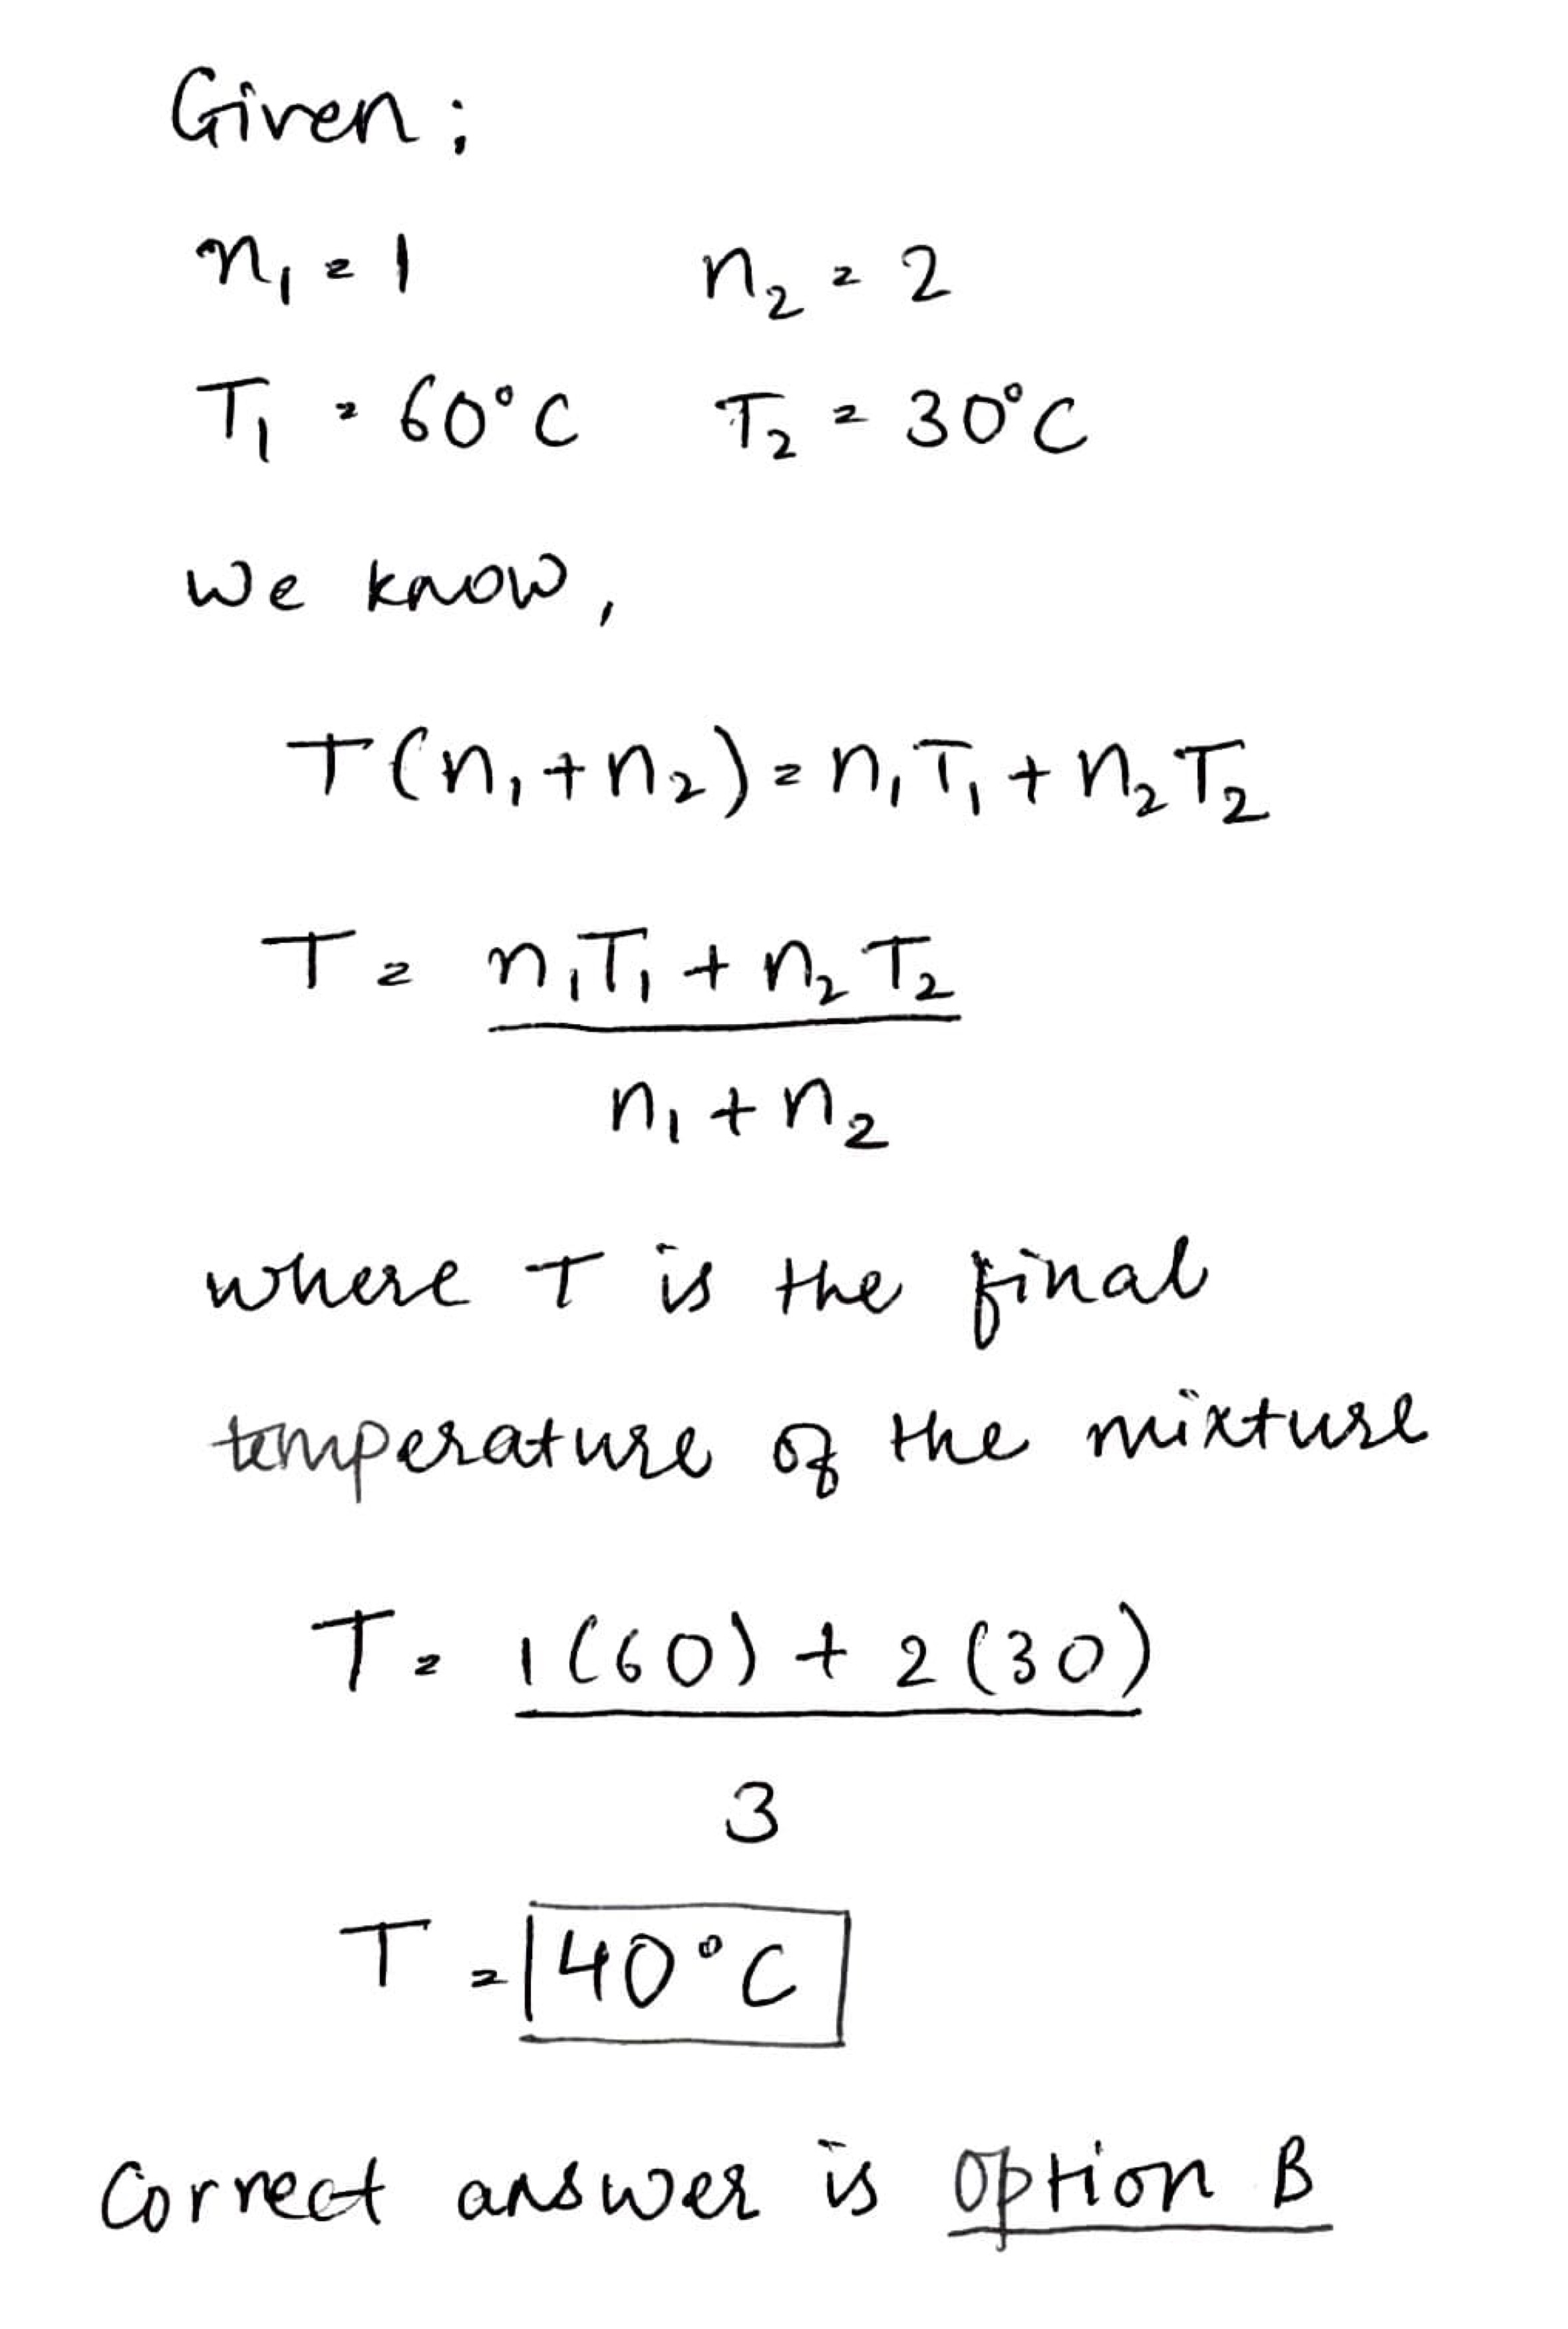 Given:
n₁ = 1 n₂ = 2
T₁ = 60°C T₂ = 30°C
We know,
T(n₁+n₂) = n₁T₁ + n₂T₂
T = n₁T₁ + n₂T₂
n₁ + n₂
where T is the final
temperature of the mixture
T = 1(60) + 2(30)
3
T = 40°C
Correct answer is option B